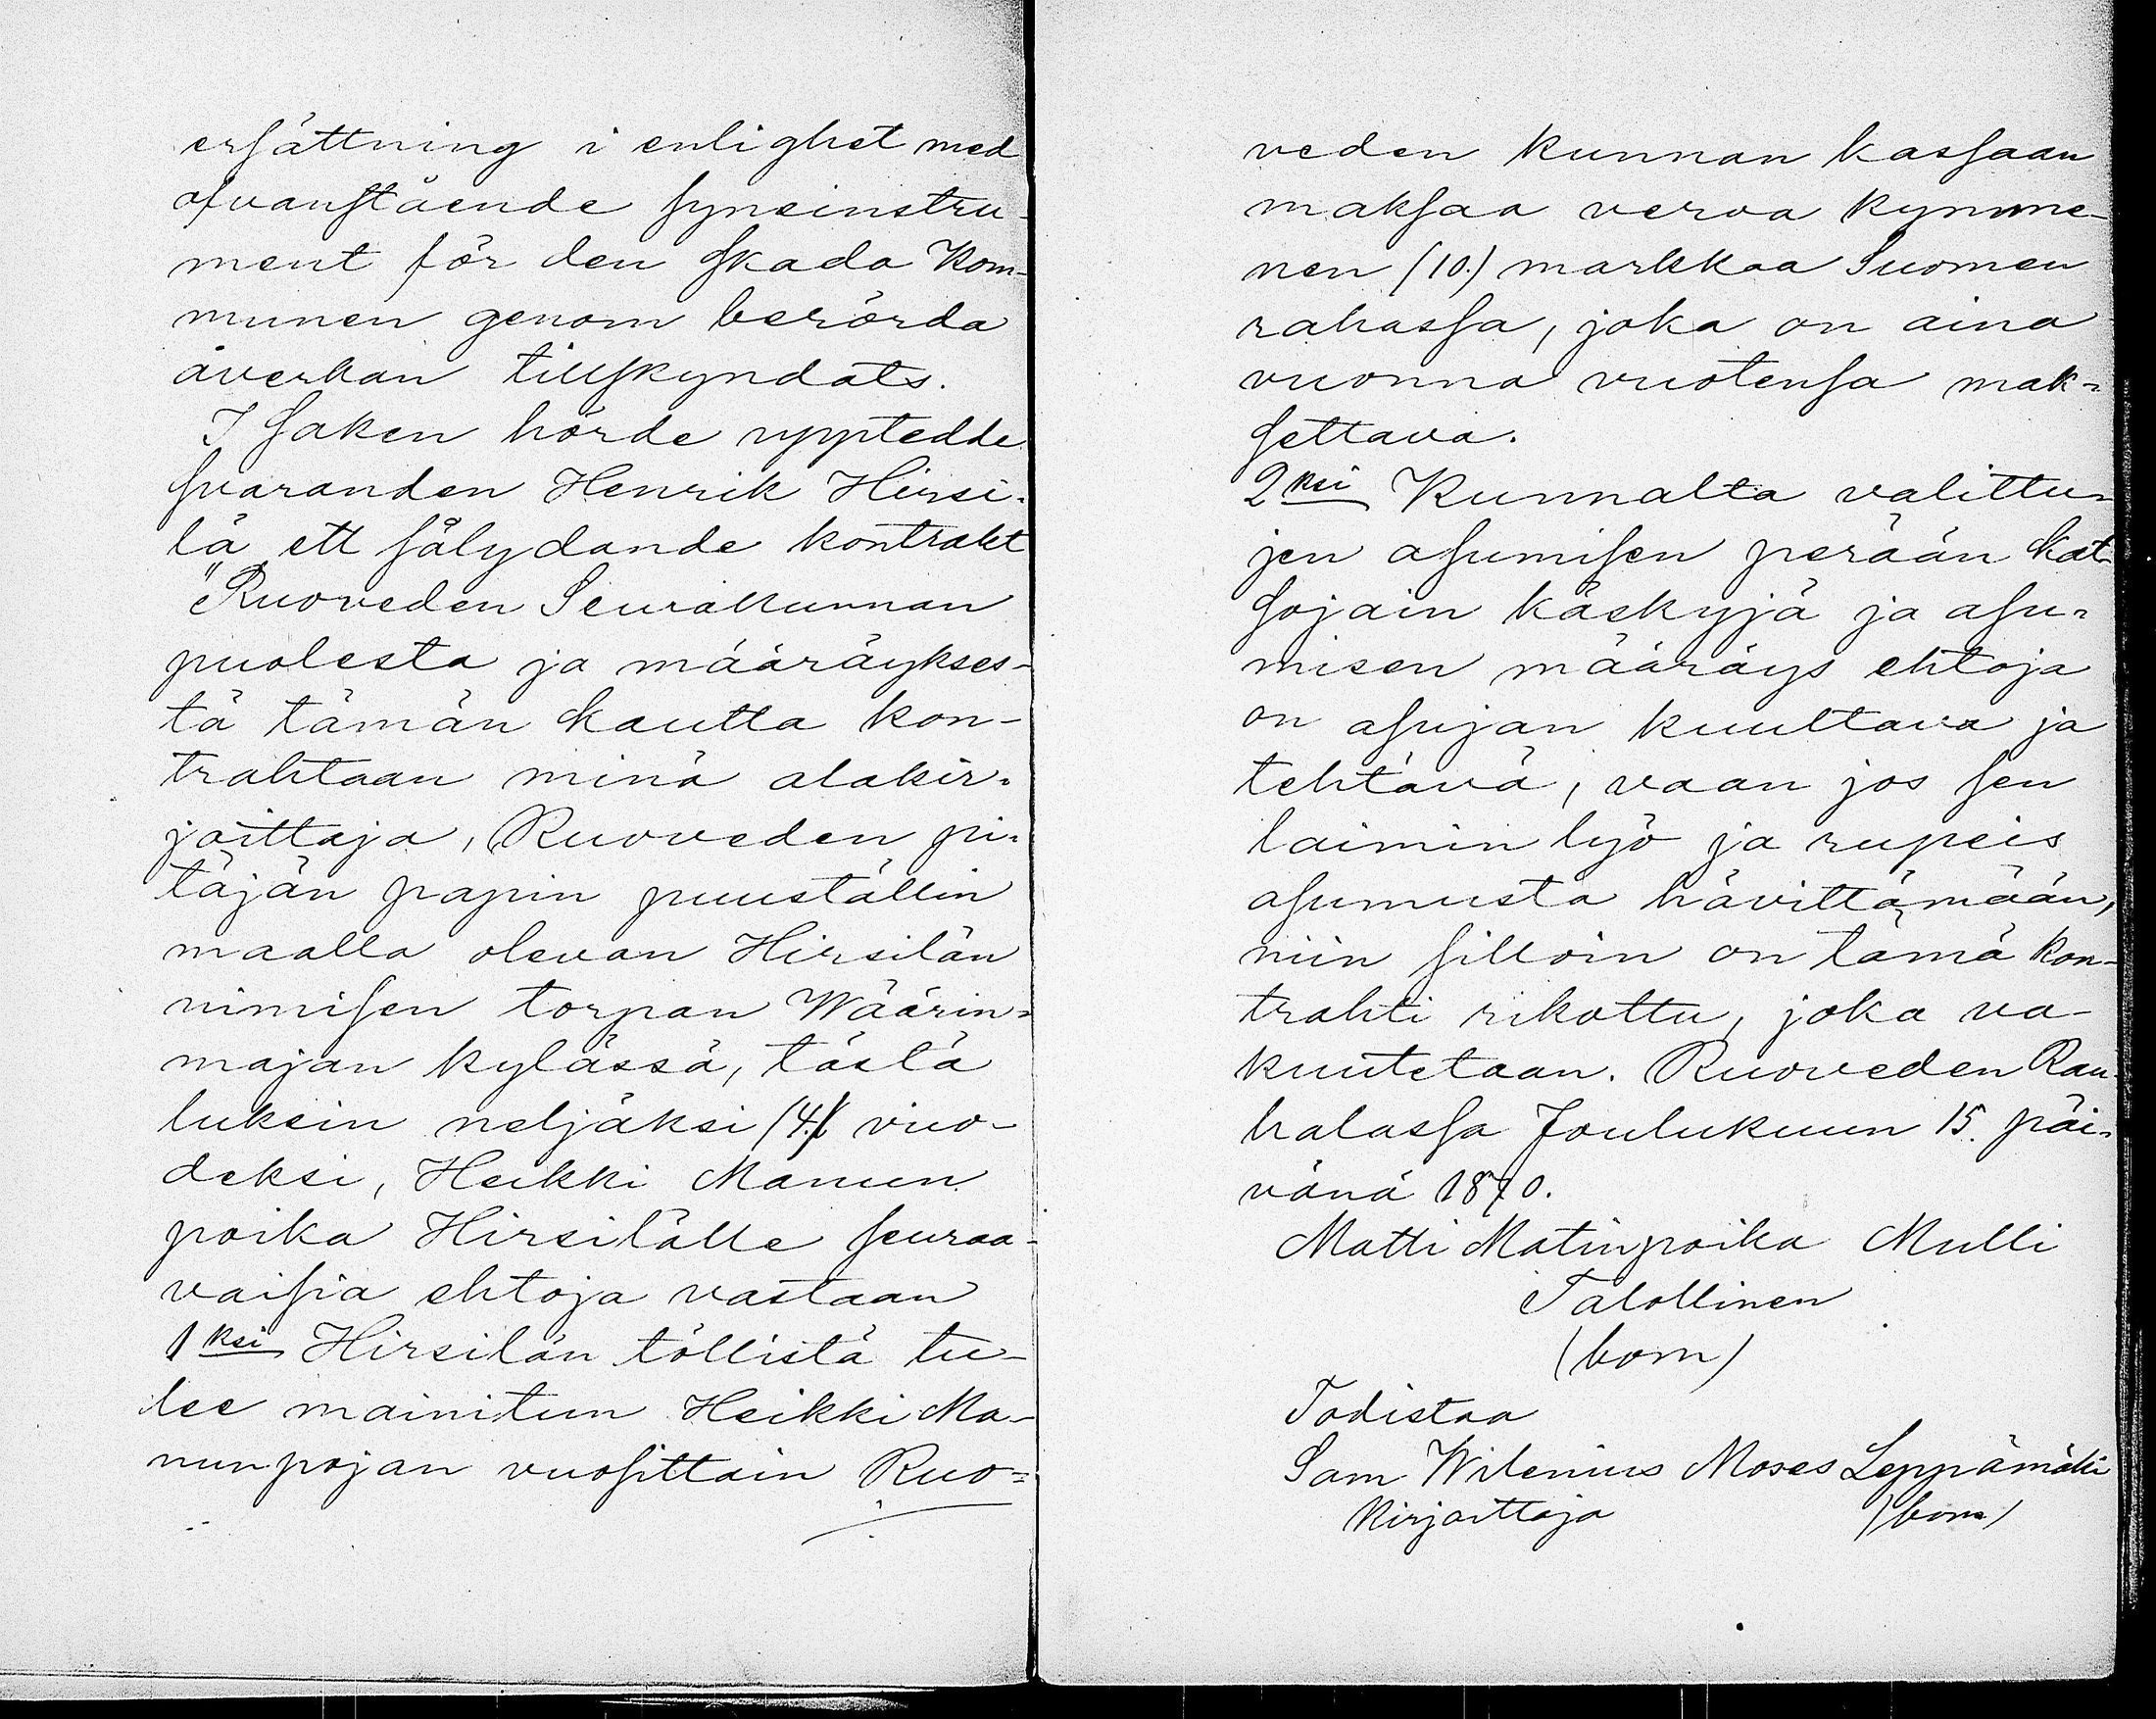 ersättning i enlighet med
ofvanstående syneinstru-
ment för den skada Kom-
munen genom berörda
åverkan tillskyndats.
I saken hörde upptedde
svaranden Henrik Hirsi-
lä ett sålydande kontrakt
"Ruoveden Seurakunnan
puolesta ja määräykses-
tä tämän kautta kon-
trahtaan minä alakir-
joittaja, Ruoveden pi-
täjän papin puuställin
maalla olevan Hirsilän
nimisen torpan Wäärin-
majan kylässä, tästä
luksin neljäksi (4.) vuo-
deksi, Heikki Manun
poika Hirsilälle seuraa-
vaisia ehtoja vastaan
1ksi Hirsilän töllistä tu-
lee mainitun Heikki Ma-
nunpojan vuosittain Ruo-
veden kunnan kassaan
maksaa veroa kymme-
nen (10.) markkaa Suomen
rahassa, joka on aina
vuonna vuotensa mak-
settava.
2ksi Kunnalta valittu-
jen asumisen perään kat-
sojain käskyjä ja asu-
misen määräys ehtoja
on asujan kuultava ja
tehtävä, vaan jos sen
laimin lyö ja rupeis
asumusta hävittämään,
niin silloin on tämä kon-
trahti rikottu, joka va-
kuutetaan. Ruoveden Rau-
halassa Joulukuun 15. päi-
vänä 1870.
Matti Matinpoika Mulli
Talollinen
(bom)
Todistaa
Sam Wilenius Moses Leppämäki
Kirjoittaja (bom)